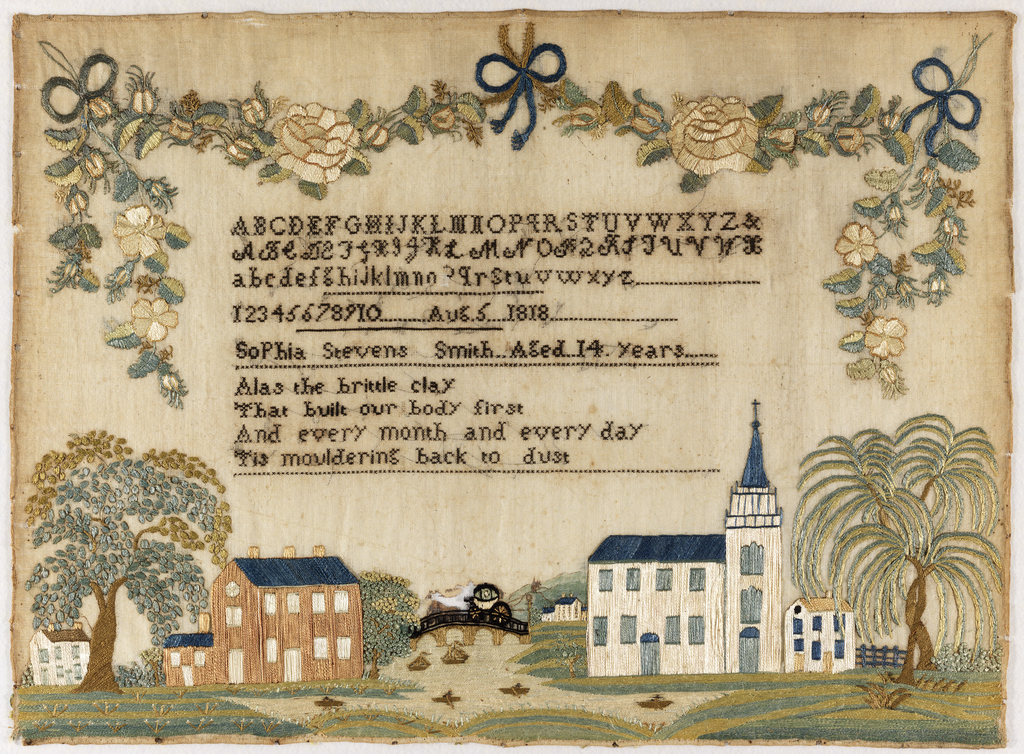 ABCDEFGHIJKLMNOPQRSTUVWXYZ&
ABCDEFGHIJKLMNOPQRSTUVWX
abcdefghijklmno?qrstuvwxyz
12345678910 Aug. 5 1818
Sophia Stevens Smith Aged 14 years
Alas the brittle clay
That built our body first
And every month and every day
Tis mouldering back to dust